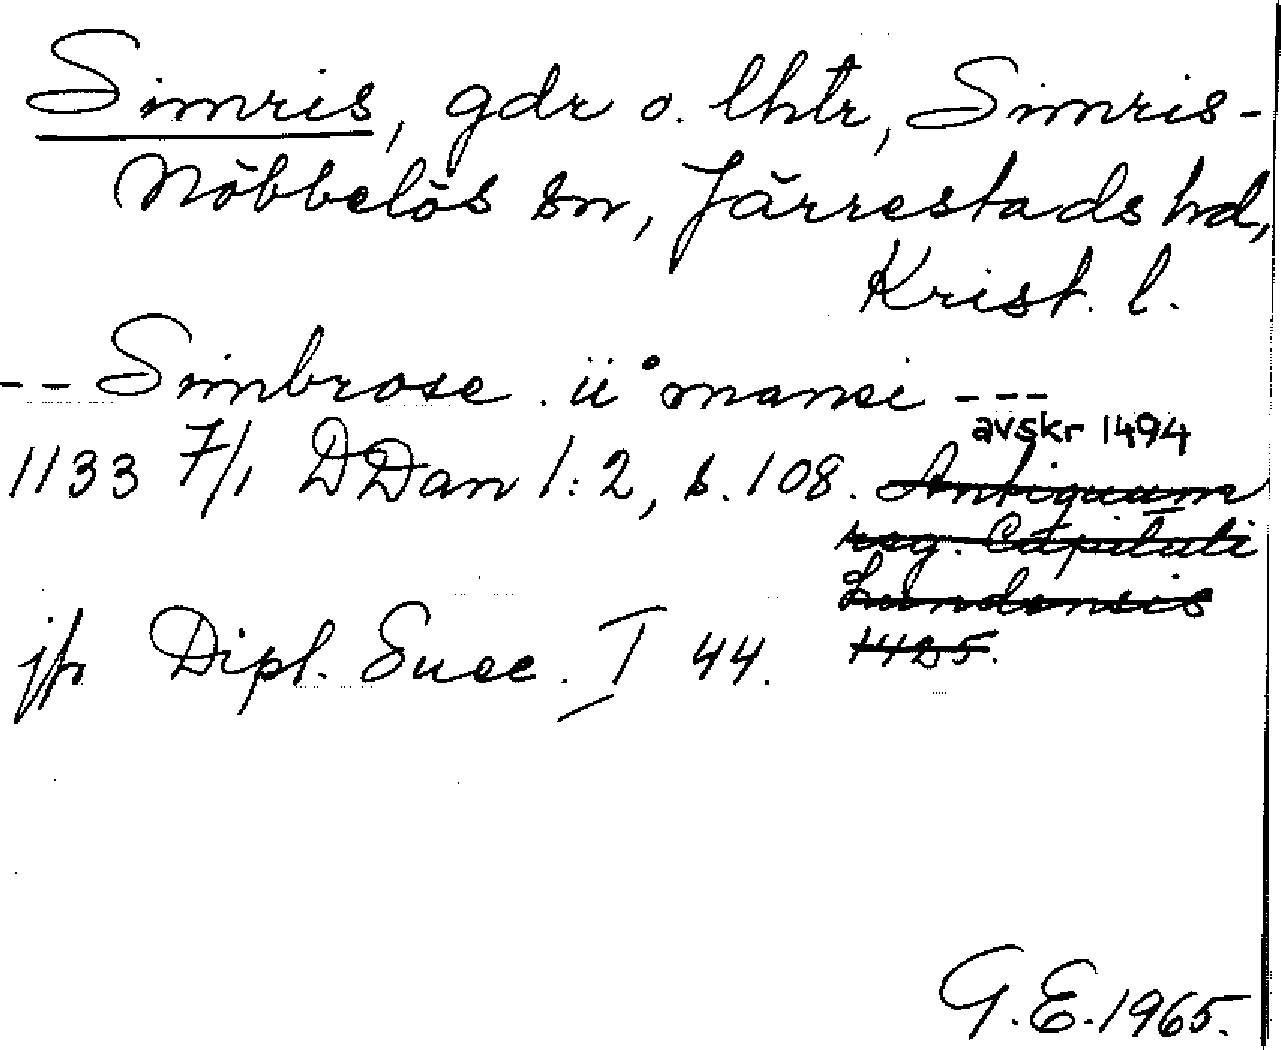 Simris, gdr o. lhtr, Simris-
Nöbbelövs sn, Järrestads hd,
Krist. l.
-- Simbrose . ii° mansi ---
avskr 1494
1133 7/1 DDan 1:2, s. 108. Antiquum
reg. Capituli
Lundensis
1425.
jfr Dipl. Suec. I 44.
G.E. 1965.